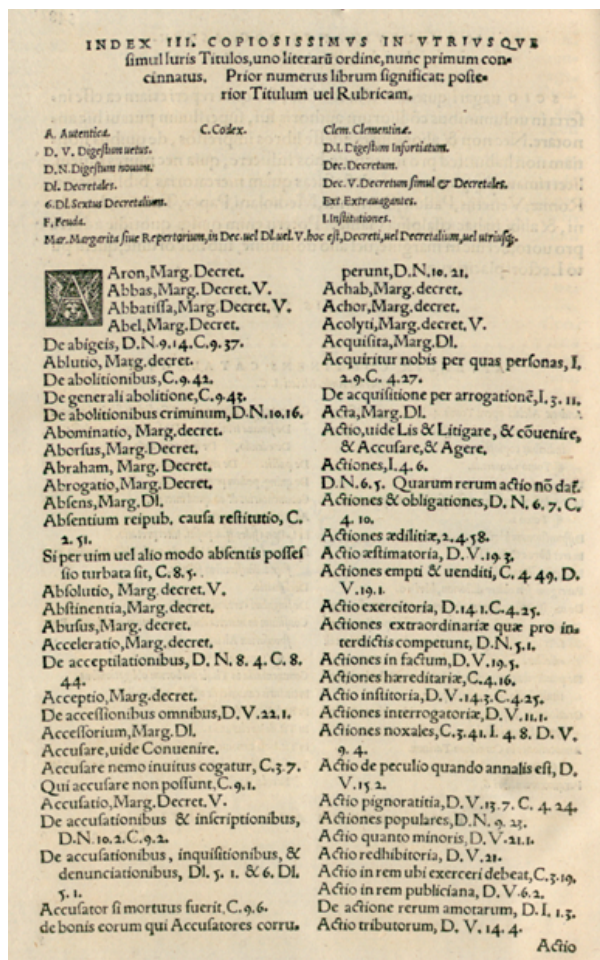 INDEX III. COPIOSISSIMVS IN VTRIVSQVE
simul Iuris Titulos, uno literarũ ordine, nunc primum con-
cinnatus. Prior numerus librum significat: poste-
rior Titulum uel Rubricam.
A. Autentica. C. Codex. Clem. Clementinæ.
D. V. Digestum uetus. D.I. Digestum Infortiatum.
D.N. Digestum nouum. Dec. Decretum.
Dl. Decretales. Dec. V. Decretum simul & Decretales.
6. Dl. Sextus Decretalium. Ext. Extrauagantes.
F. Feuda. I. Institutiones.
Mar. Margarita siue Repertorium, in Dec. uel Dl. uel. V. hoc est, Decreti, uel Decretalium, uel utriusq;.
AAron, Marg. Decret.
Abbas, Marg. Decret. V.
Abbatissa, Marg. Decret. V.
Abel, Marg. Decret.
De abigeis, D.N.9.14.C.9.37.
Ablutio, Marg. decret.
De abolitionibus, C.9.42.
De generali abolitione, C.9.43.
De abolitionibus criminum, D.N.10.16.
Abominatio, Marg. decret.
Aborsus, Marg. Decret.
Abraham, Marg. Decret.
Abrogatio, Marg. Decret.
Absens, Marg. Dl.
Absentium reipub. causa restitutio, C.
2. 51.
Si per uim uel alio modo absentis posses
sio turbata sit, C.8.5.
Absolutio, Marg. decret. V.
Abstinentia, Marg. decret.
Abusus, Marg. decret.
Acceleratio, Marg. decret.
De acceptilationibus, D. N. 8. 4. C. 8.
44.
Acceptio, Marg. decret.
De accessionibus omnibus, D.V.22.1.
Accessorium, Marg. Dl.
Accusare, uide Conuenire.
Accusare nemo inuitus cogatur, C.3.7.
Qui accusare non possunt, C.9.1.
Accusatio, Marg. Decret. V.
De accusationibus & inscriptionibus,
D.N.10.2.C.9.2.
De accusationibus, inquisitionibus, &
denunciationibus, Dl. 5. 1. & 6. Dl.
5.1.
Accusator si mortuus fuerit, C.9.6.
de bonis eorum qui Accusatores corru-
perunt, D.N. 10. 21.
Achab, Marg. decret.
Achor, Marg. decret.
Acolyti, Marg. decret. V.
Acquisita, Marg. Dl.
Acquiritur nobis per quas personas, I.
2.9.C. 4.27.
De acquisitione per arrogationẽ, I.3. 11.
Acta, Marg. Dl.
Actio, uide Lis & Litigare, & cõuenire,
& Accusare, & Agere.
Actiones, I.4.6.
D.N.6.5. Quarum rerum actio nõ daẽ.
Actiones & obligationes, D. N. 6. 7. C.
4. 10.
Actiones ædilitiæ, 2.4.58.
Actio æstimatoria, D. V.19.3.
Actiones empti & uenditi, C. 4. 49. D.
V.19.1.
Actio exercitoria, D.14.1.C.4.25.
Actiones extraordinariæ quæ pro in-
terdictis competunt, D.N.5.1.
Actiones in factum, D.V.19.5.
Actiones hæreditariæ, C.4.16.
Actio institoria, D.V.14.3.C.4.25.
Actiones interrogatoriæ, D.V.11.1.
Actiones noxales, C.3.41. I. 4. 8. D. V.
9. 4.
Actio de peculio quando annalis est, D.
V.15 2.
Actio pignoratitia, D.V.13.7. C. 4. 24.
Actiones populares, D.N. 9. 23.
Actio quanto minoris, D.V.21.1.
Actio redhibitoria, D.V.21.
Actio in rem ubi exerceri debeat, C.3.19.
Actio in rem publiciana, D.V.6.2.
De actione rerum amotarum, D. I. 1.3.
Actio tributorum, D. V. 14. 4.
Actio